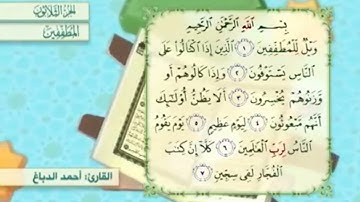 الجزء الثلاثون
المطففين
بِسْمِ اللَّهِ الرَّحْمَٰنِ الرَّحِيمِ
وَيْلٌ لِّلْمُطَفِّفِينَ ١ الَّذِينَ إِذَا اكْتَالُوا عَلَى
النَّاسِ يَسْتَوْفُونَ ٢ وَإِذَا كَالُوهُمْ أَو
وَّزَنُوهُمْ يُخْسِرُونَ ٣ أَلَا يَظُنُّ أُولَٰئِكَ
أَنَّهُم مَّبْعُوثُونَ ٤ لِيَوْمٍ عَظِيمٍ ٥ يَوْمَ يَقُومُ
النَّاسُ لِرَبِّ الْعَالَمِينَ ٦ كَلَّا إِنَّ كِتَابَ
الْفُجَّارِ لَفِي سِجِّينٍ ٧
القارئ: أحمد الدباغ